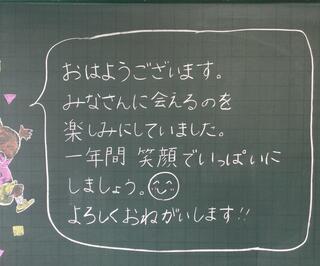 おはようございます。
みなさんに会えるのを
楽しみにしていました。
一年間 笑顔でいっぱいに
しましょう。
よろしくおねがいします!!